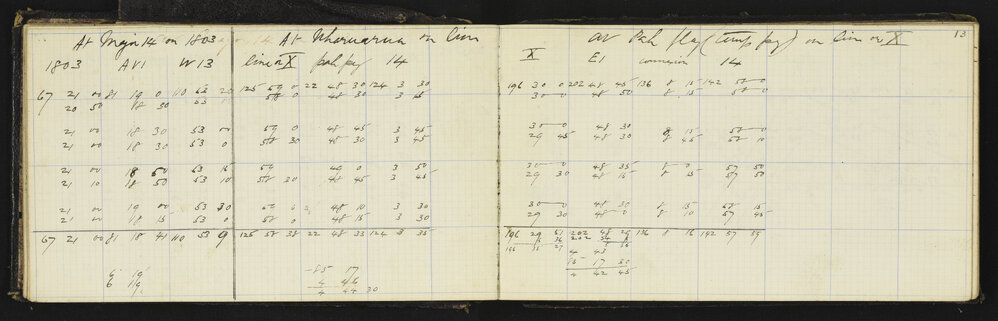 At Mgn 14 on 1803
1803 AV1 W13
67 21 00 81 19 0 110 53 20
20 50 18 30 53
21 00 18 30 53 00
21 00 18 30 53 0
21 00 18 50 53 15
21 10 18 50 53 10
21 00 19 00 53 30
21 00 18 15 53 0
67 21 00 81 18 41 110 53 9
6 19
6 19
At on line
line on X pah peg 14
125 59 0 22 48 30 124 3 30
58 0 48 30 3 15
59 0 48 45 3 45
58 30 48 30 3 45
59 49 0 3 50
58 30 48 45 3 45
59 0 48 10 3 30
58 0 48 15 3 30
125 58 38 22 48 33 124 3 35
85 17
4 46
4 44 30
13
At Pah flag (temp peg) on line on X
X E1 14
196 30 0 202 48 45 136 8 15 142 58 0
30 0 48 50 8 15 58 0
30 0 48 30 8 15 58 0
29 45 48 30 8 45 58 10
30 0 48 35 8 0 57 50
29 30 48 15 8 15 57 50
30 0 48 30 8 15 58 15
29 30 48 0 8 10 57 45
196 29 51 202 48 29 136 8 16 142 57 59
4 43
85 17 30
4 42 45